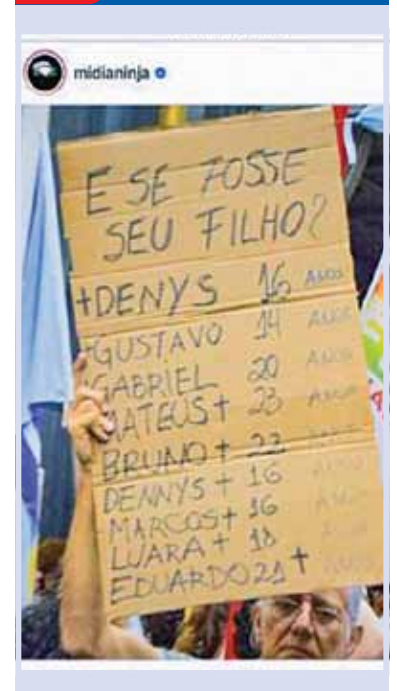 midianinja
E SE FOSSE
SEU FILHO?
+DENYS 16 ANOS
+GUSTAVO 14 ANOS
GABRIEL 20 ANOS
MATEUS+ 23 ANOS
BRUNO+ 22
DENNYS+ 16 ANOS
MARCOS+ 16 ANOS
LUARA+ 18 ANOS
EDUARDO 21+ ANOS